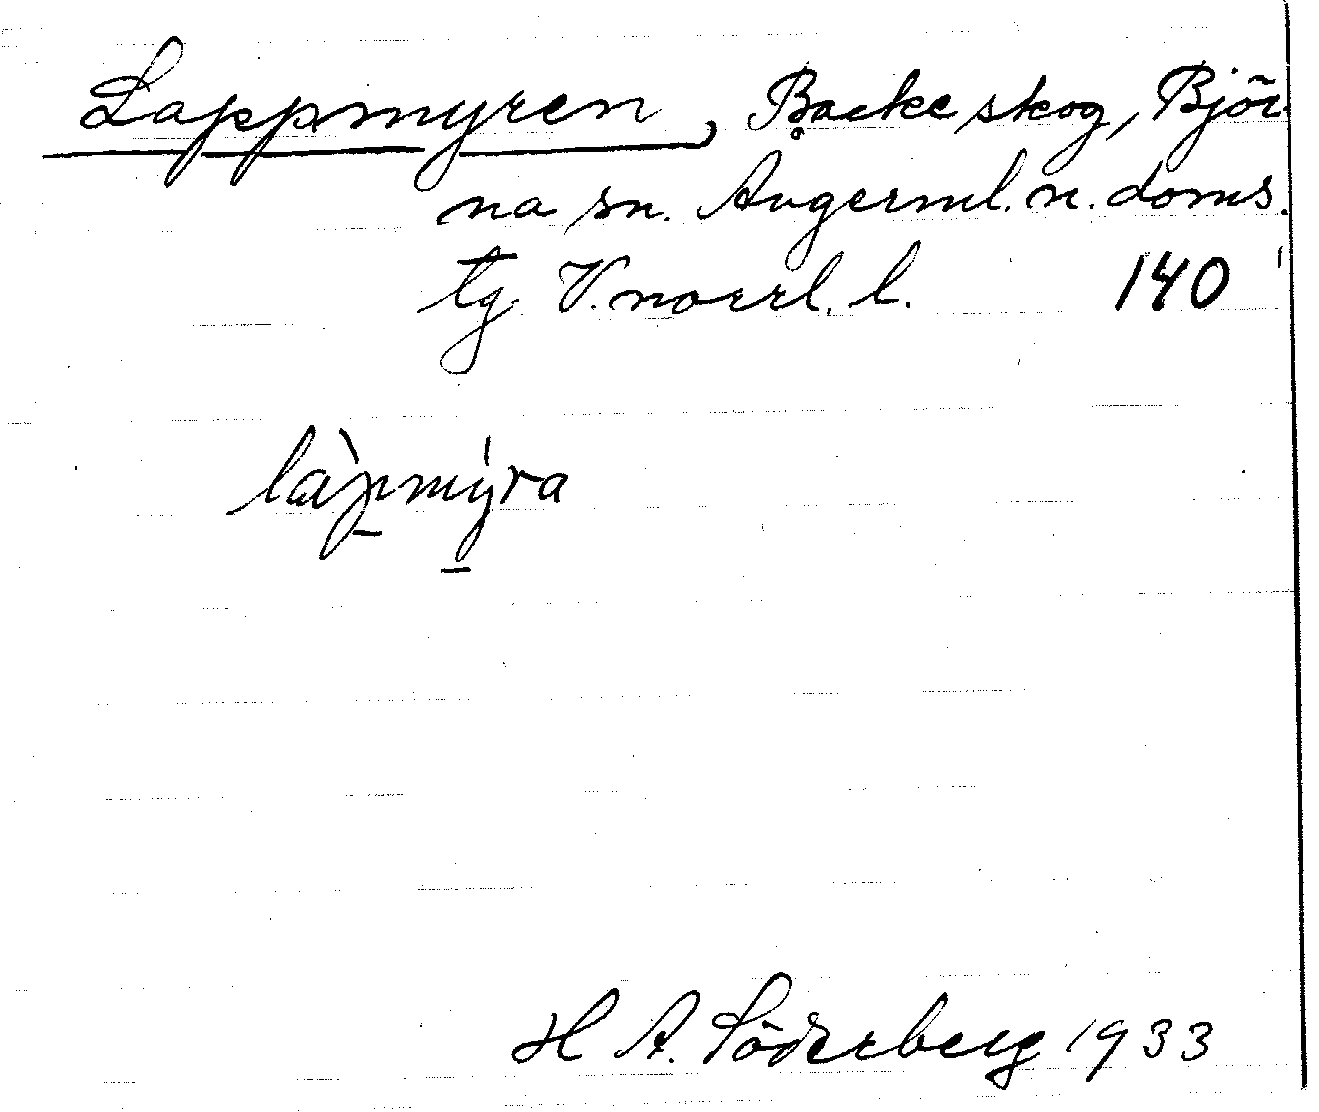 Lappmyren, Backe skog, Björ-
na sn. Angerml. n. doms.
tg V. norrl. l. 140
làpmýra
H A. Söderberg 1933